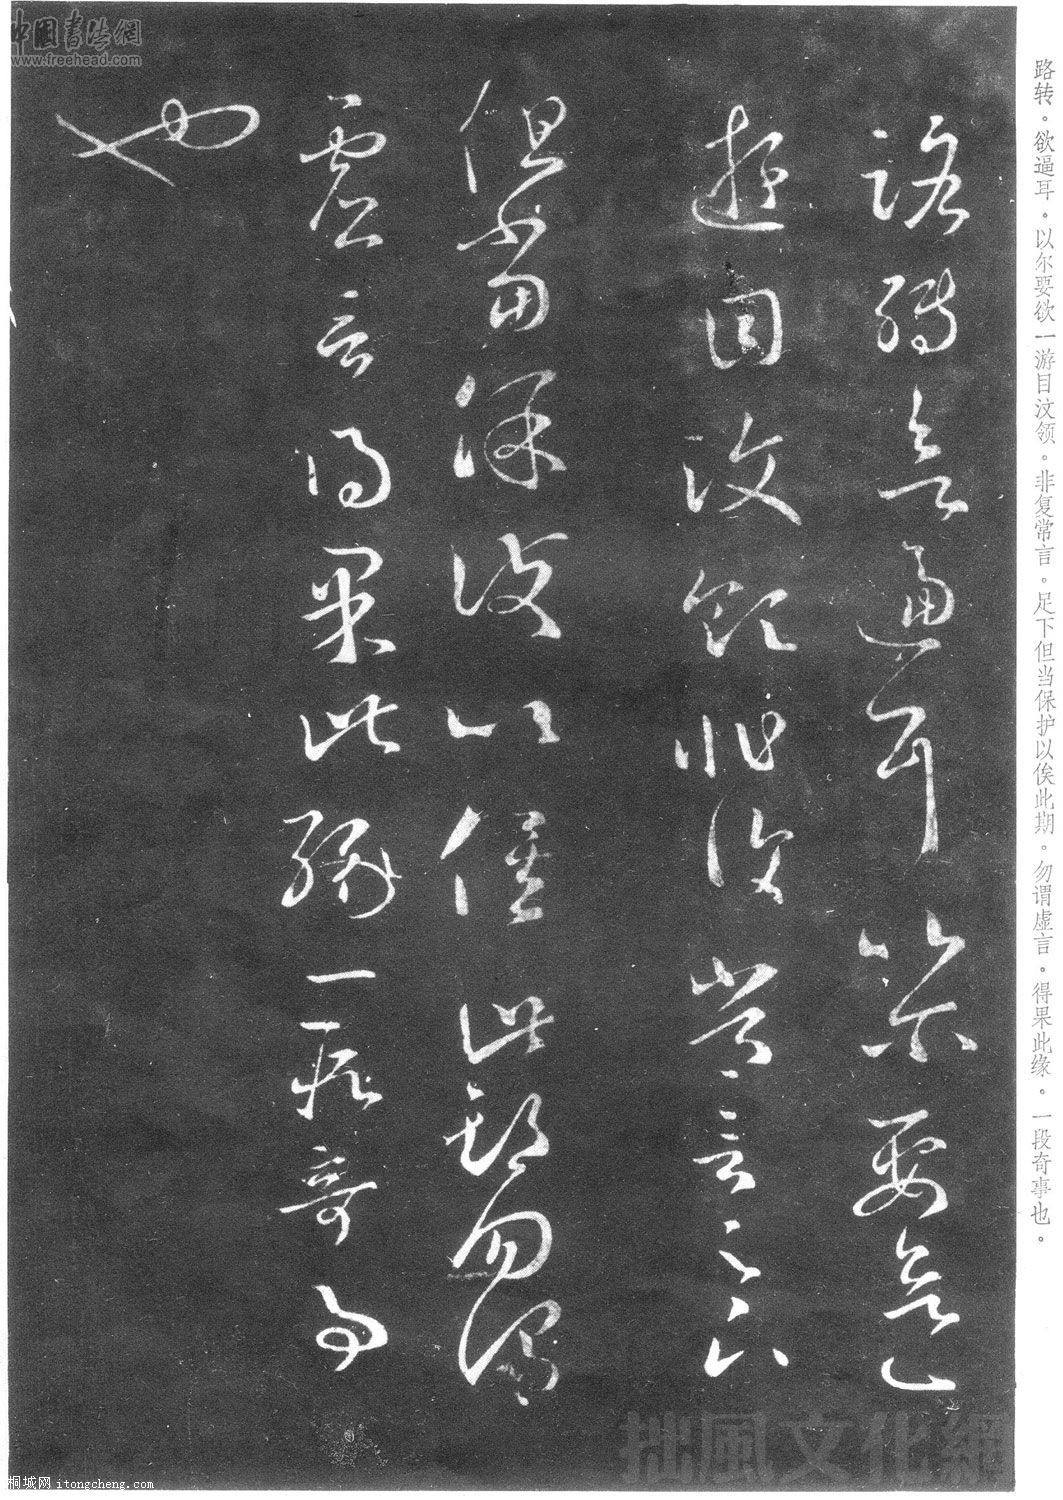 路转。欲逼耳。以尔要欲一游目汶领。非复常言。足下但当保护以俟此期。勿谓虚言。得果此缘。一段奇事也。
路轉欲逼耳以爾要欲一
遊目汶領非復常言足下
但當保護以俟此期勿謂
虛言得果此緣一段奇事
也
中國書法網
www.freehead.com
拙風文化網
桐城网 itongcheng.com